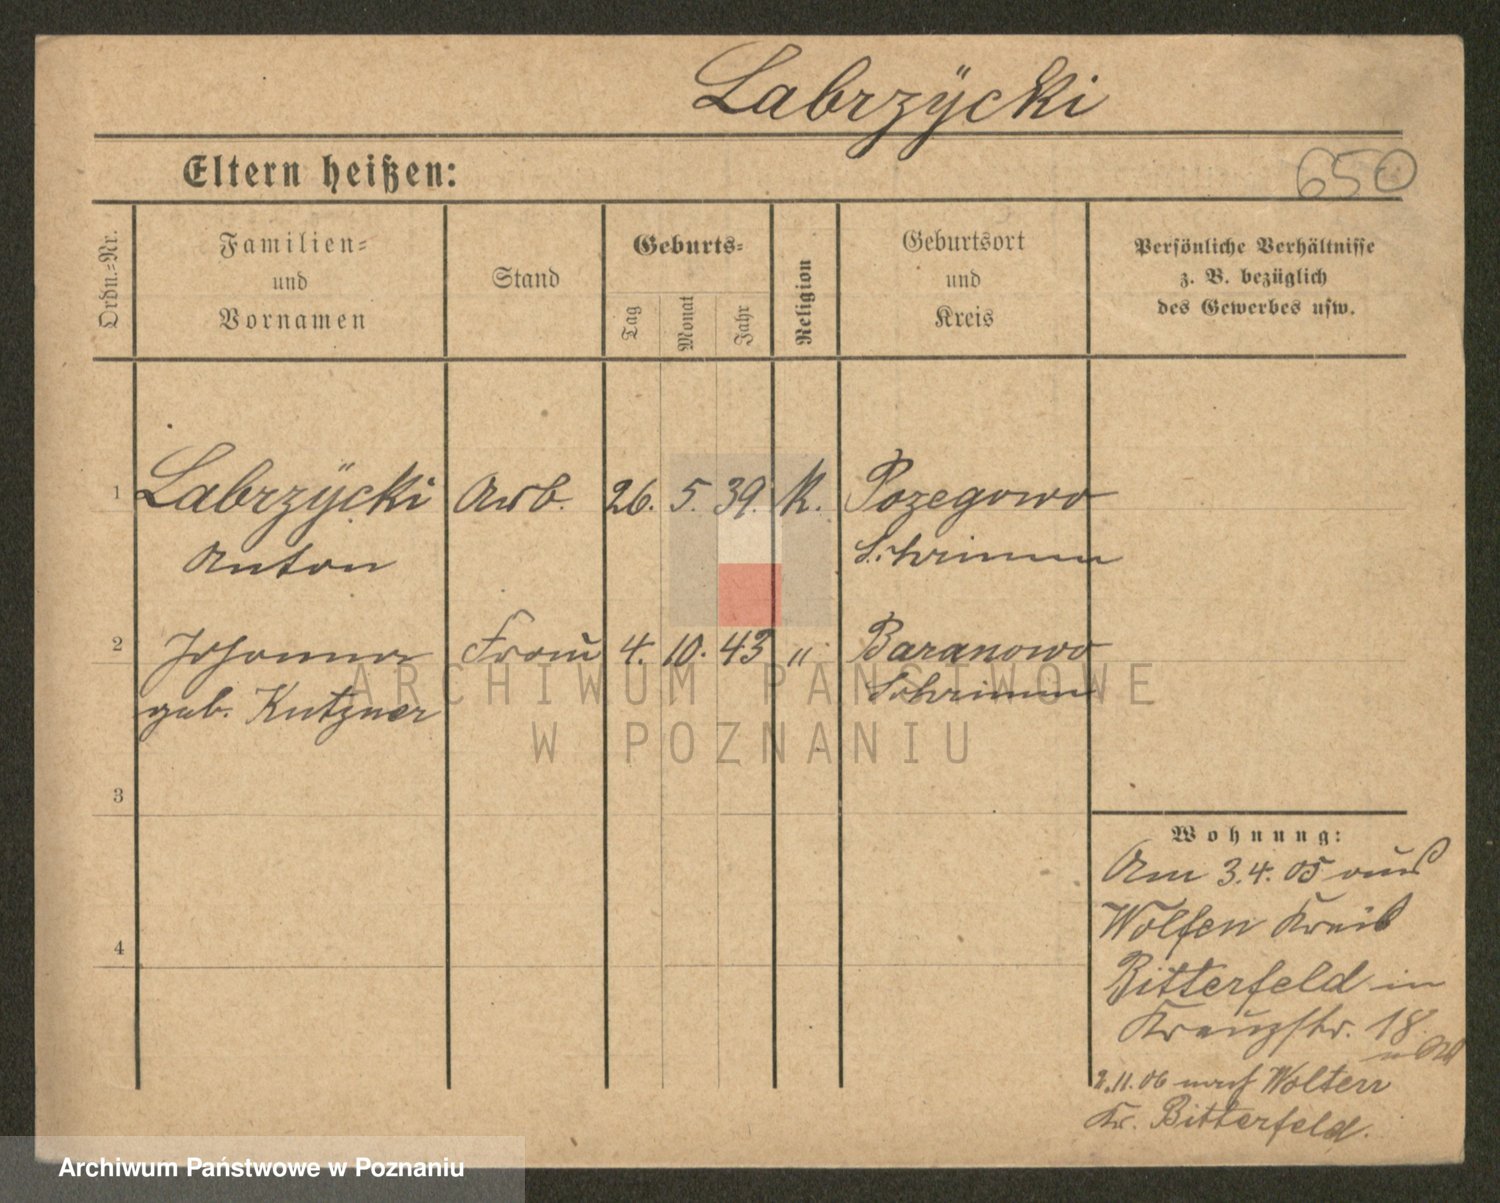 Labrzÿcki
Eltern heißen:
650
Ordn.-Nr.
Familien-
und
Vornamen
Stand
Geburts-
Tag
Monat
Jahr
Religion
Geburtsort
und
Kreis
Persönliche Verhältnisse
z. B. bezüglich
des Gewerbes usw.
1 Labrzÿcki Arb. 26. 5. 39. K. Pozegowo
Anton Schrimm
2 Johanna Frau 4. 10. 43 " Baranowo
geb. Kutzner Schrimm
ARCHIWUM PAŃSTWOWE
W POZNANIU
3
4
Wohnung:
Am 3.4.05 aus
Wolfen Kreis
Bitterfeld in
Kreuzstr. 18.
2.11.06 nach Wolfen
Kr. Bitterfeld.
Archiwum Państwowe w Poznaniu